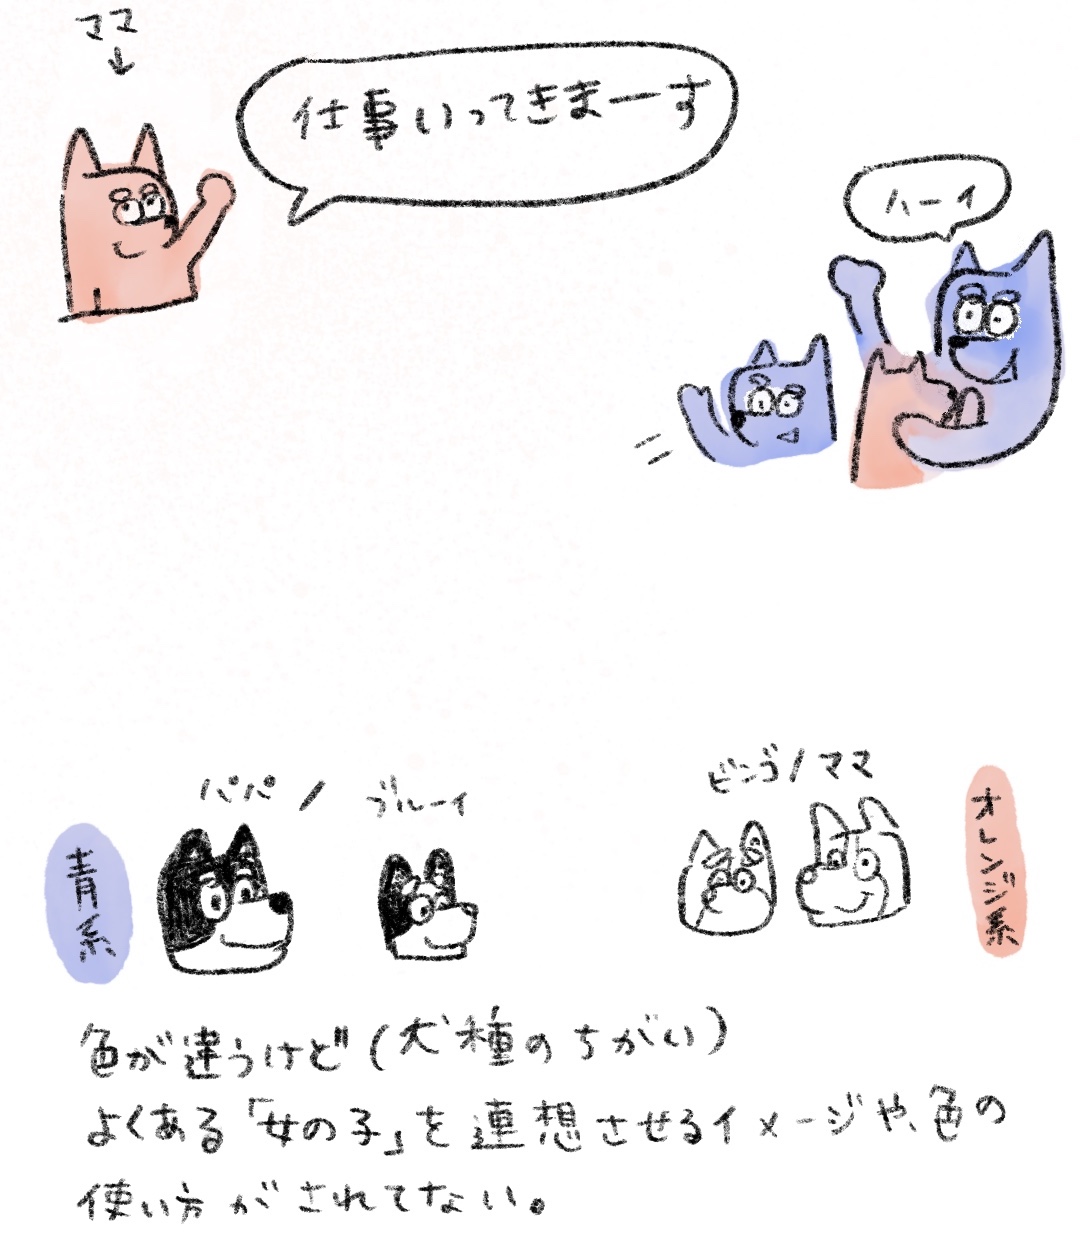 ママ
↓
仕事いってきまーす
ハーイ
パパ / ブルーイ
ビンゴ / ママ
青系
オレンジ系
色が違うけど(犬種のちがい)
よくある「女の子」を連想させるイメージや、色の
使い方がされてない。